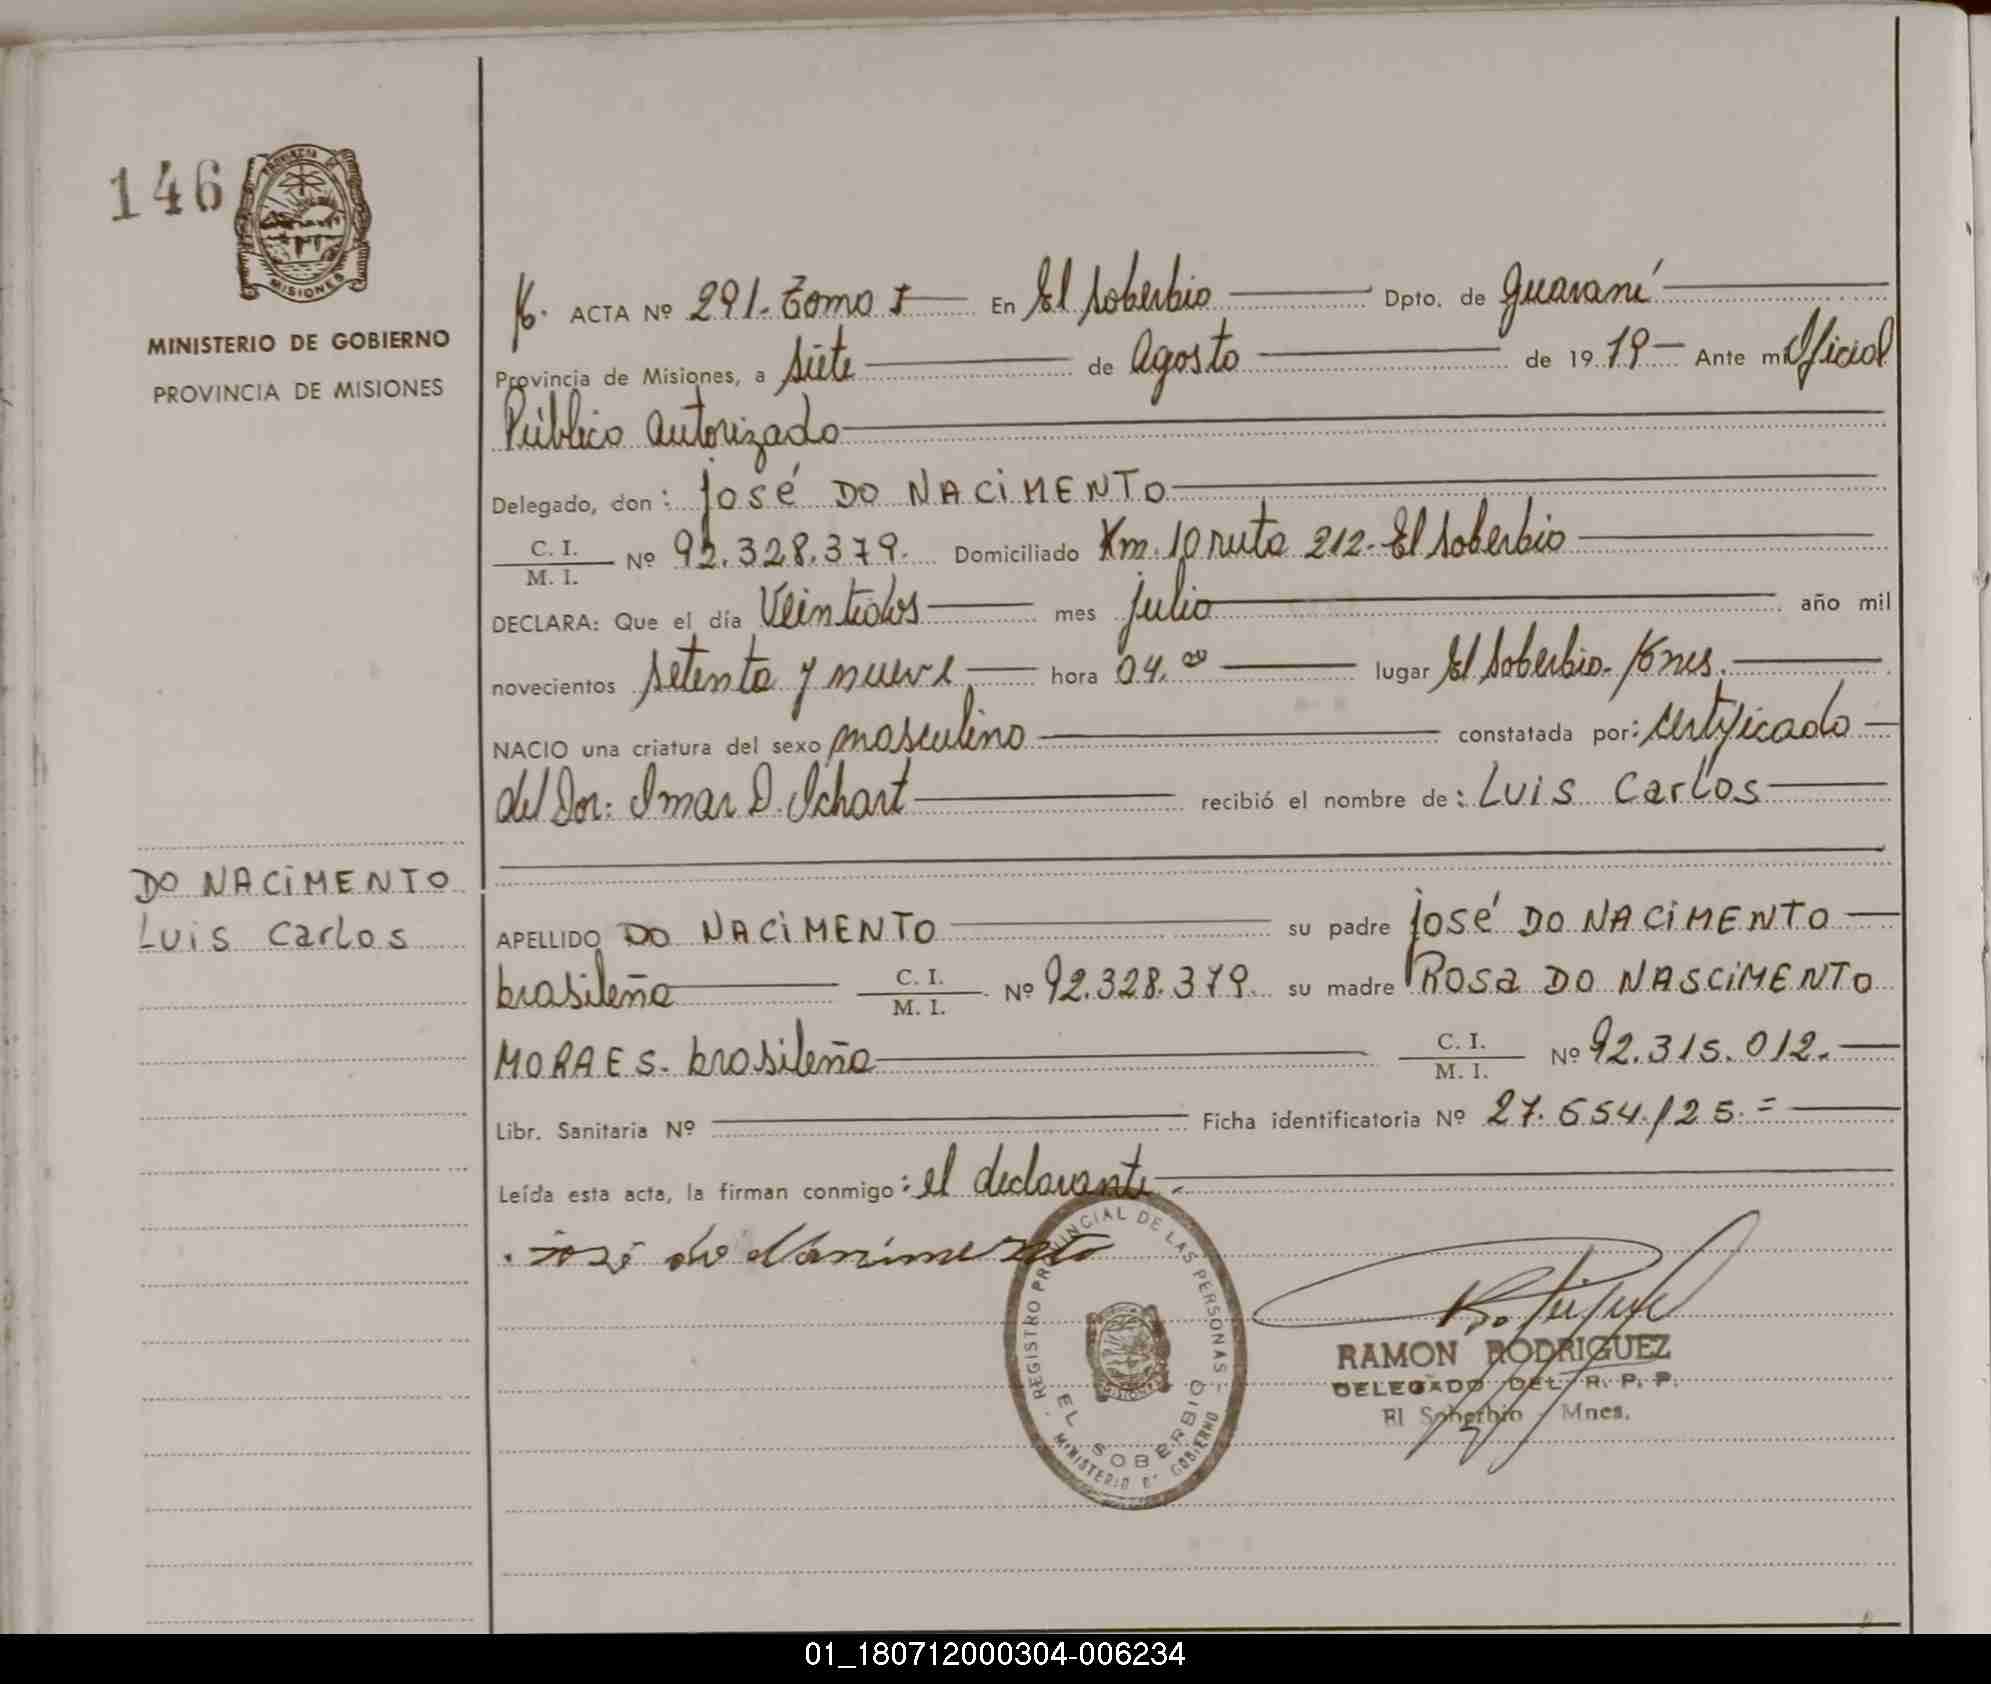 146
PROVINCIA DE
MISIONES
MINISTERIO DE GOBIERNO
PROVINCIA DE MISIONES
ACTA Nº 291. Tomo I En El Soberbio Dpto. de Guaraní
Provincia de Misiones, a siete de Agosto de 19 79 Ante mí Oficial
Público Autorizado
Delegado, don: José DO NACIMENTO
C. I.
M. I. Nº 92.328.379. Domiciliado Km. 10 ruta 212. El Soberbio
DECLARA: Que el día Veintidos mes julio año mil
novecientos setenta y nueve hora 04.20 lugar El Soberbio. Mnes.
NACIO una criatura del sexo masculino constatada por: Certificado
del Dor: Omar D. Ichart recibió el nombre de: Luis Carlos
DO NACIMENTO
Luis Carlos
APELLIDO DO NACIMENTO su padre José DO NACIMENTO
brasileña C. I.
M. I. Nº 92.328.379. su madre ROSA DO NASCIMENTO
MORAES. brasileña C. I.
M. I. Nº 92.315.012.
Libr. Sanitaria Nº Ficha identificatoria Nº 27.654.125.=
Leída esta acta, la firman conmigo: el declarante.
José do Nacimento
REGISTRO PROVINCIAL DE LAS PERSONAS
EL SOBERBIO
MINISTERIO Dº GOBIERNO
RAMON RODRIGUEZ
DELEGADO DEL R. P. P.
El Soberbio - Mnes.
01_180712000304-006234